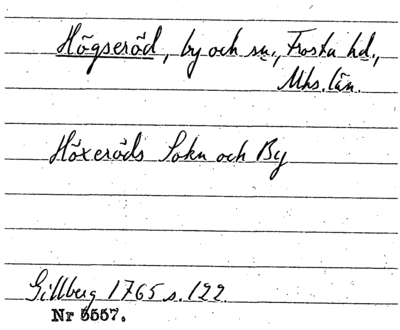 Högseröd, by och sn., Frosta hd.,
Mhs. län.
Höxeröds Sokn och By
Gillberg 1765 s. 122
Nr 5557.